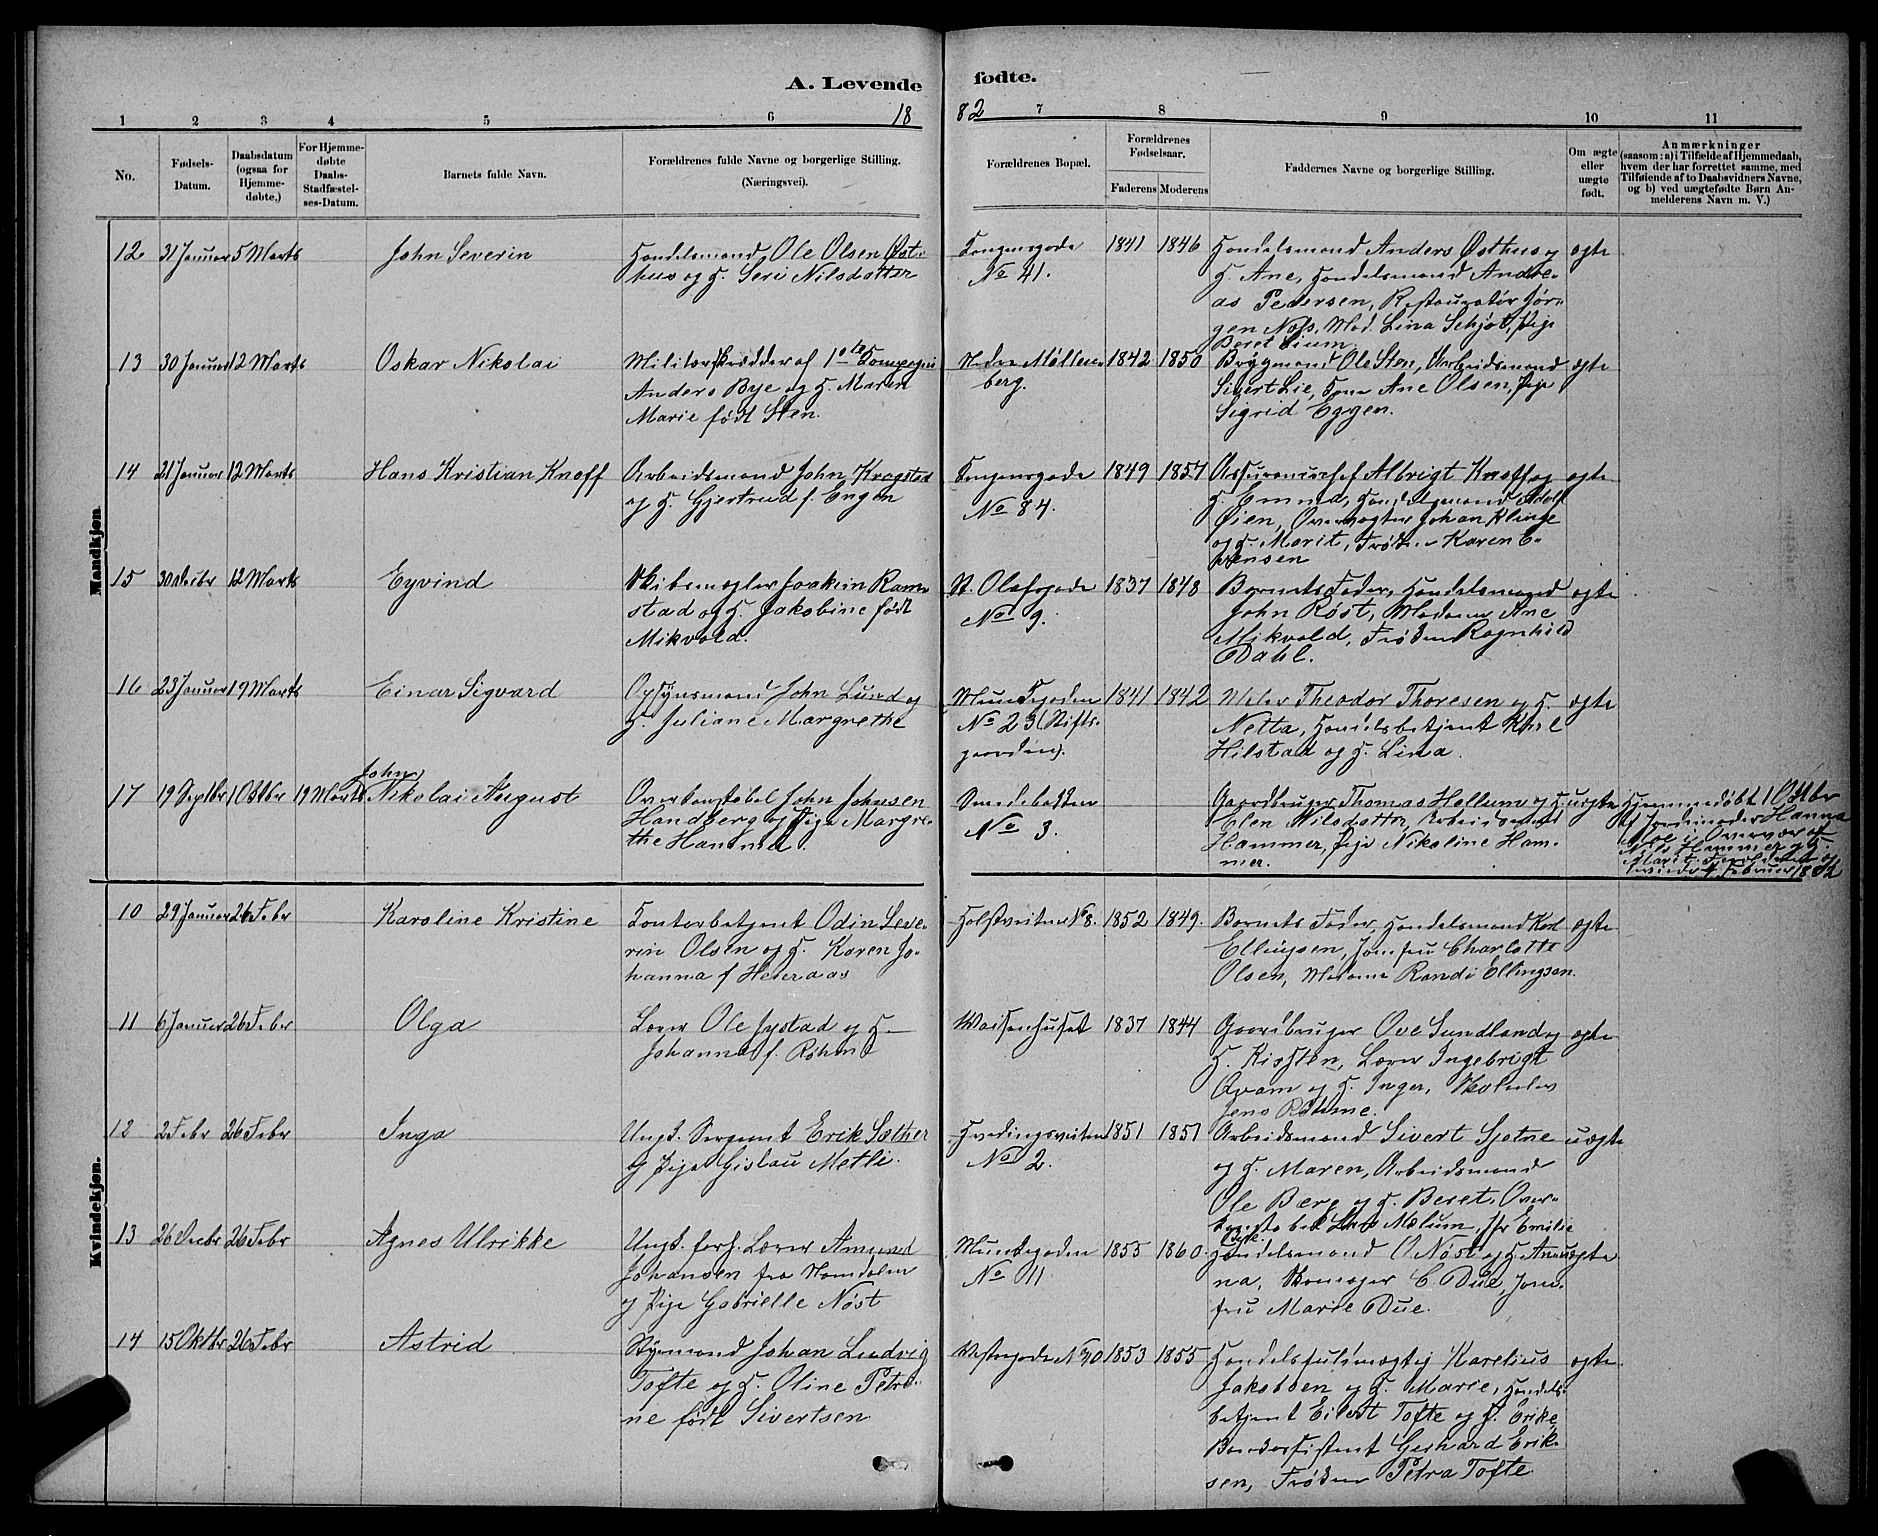 A. Levende
fødte.
18
82
1 2 3 4 5 6 7 8 9 10 11
No.
Fødsels-
Datum.
Daabsdatum
(ogsaa for
Hjemme-
døbte.)
For Hjemme-
døbte
Daabs-
Stadfæstel-
ses-Datum.
Barnets fulde Navn.
Forældrenes fulde Navne og borgerlige Stilling.
(Næringsvei).
Forældrenes Bopæl.
Forældrenes
Fødselsaar.
Faderens Moderens
Faddernes Navne og borgerlige Stilling.
Om ægte
eller
uægte
født.
Anmærkninger
(saasom: a) i Tilfælde af Hjemmedaab,
hvem der har forrettet samme, med
Tilføiende af to Daabsvidners Navne,
og b) ved uægtefødte Børn An-
melderens Navn m. V.)
Mandkjøn.
12 31 Januar 5 Marts
John Severin
Handelsmand Ole Olsen Øst-
hus og H. Seri Nilsdatter
Kongensgade
No 41.
1841 1846
Handelsmand Anders Østhus og
H. Ane, Handelsmand Andre-
as Pedersen, Restauratør Jør-
gen Næss, Mad. Lina Schjøt, Pige
Beret Lium.
ægte
13 30 Januar 12 Marts
Oskar Nikolai
Militærskrædder af 1ste Kompagni
Anders Bye og H. Maren
Marie født Sten.
Nedre Møllen-
berg.
1842 1850
Brygmand Ole Sten, Arbeidsmand
Sivert Lie, Kone Ane Olsen, Pige
Sigrid Eggen.
ægte
14 21 Januar 12 Marts
Hans Kristian Knoff
Arbeidsmand John Krogstad
og H. Gjertrud f. Engen
Kongensgade
No 84.
1849 1857
Assurancechef Albrigt Knoff og
H. Emma, Handelsmand Adolf
Øien, Overvægter Johan Klinge
og H. Marit, Frøken Karen E-
vensen
ægte
15 30 Decbr 12 Marts
Eyvind
Skibsmægler Joakim Ram-
stad og H. Jakobine født
Mikvold.
St. Olafsgade
No 9.
1837 1848
Barnets Fader, Handelsmand
John Røst, Madame Ane
Mikvold, Frøken Ragnhild
Dahl.
ægte
16 23 Januar 19 Marts
Einar Sigvard
Opsynsmand John Lund og
H. Juliane Margrethe
Munkegaden
No 23 (Stifts-
gaarden).
1841 1842
Maler Theodor Thoresen og H.
Netta, Handelsbetjent Karl
Hilstad og H. Lina.
ægte
17 19 Septbr 1 Oktbr 19 Marts
John
Nikolai August
Overkonstabel John Johnsen
Handberg og Pige Margre-
the Hammer.
Smedebakken
No 3.
Gaardbruger Thomas Hellum og H.
Elen Nilsdatter, Arbeidsmand
Hammer, Pige Nikoline Ham-
mer.
uægte
Hjemmedøbt 1 Oktbr
af Jordmoder Hanna
Moe i Overvær af
Nils Hammer og H.
Marit.
Februar 1882
Kvindekjøn.
10 29 Januar 26 Febr
Karoline Kristine
Kontorbetjent Odin Seve-
rin Olsen og H. Karen Jo-
hanna f Heieraas
Holstveiten No 8.
1852 1849.
Barnets Fader, Handelsmand Karl
Ellingsen, Jomfru Charlotte
Olsen, Madame Randi Ellingsen.
ægte
11 6 Januar 26 Febr
Olga
Lærer Ole Jystad og H.
Johanna f. Røhme
Waisenhuset
1837 1844
Gaardbruger Ove Sundland og
H. Kirsten, Lærer Ingebrigt
Qvam og H. Inger, Skolelev
Jens Røhme.
ægte
12 2 Febr 26 Febr
Inga
Ungk. Sergeant Erik Sæther
og Pige Gislau Metli.
Hvedingsveiten
No 2.
1851 1851
Arbeidsmand Sivert Sjetne
og H. Maren, Arbeidsmand
Ole Berg og H. Beret, Over-
konstabel Lars Mælum, Jfr Emilie
uægte
13 26 Decbr 26 Febr
Agnes Ulrikke
Ungk. forh. Lærer Amund
Johansen fra Namdalen
og Pige Gabrielle Nøst
Munkegaden
No 11
1855 1860.
Handelsmand O Nøst og H. Ann-
na, Skomager C. Due, Jom-
fru Marie Due.
uægte
14 15 Oktbr 26 Febr
Astrid
Styrmand Johan Ludvig
Tofte og H. Oline Petri-
ne født Sivertsen
Vestregade No 40
1853 1855
Handelsfuldmægtig Karelius
Jakobsen og H. Marie, Handels-
betjent Eilert Tofte og H. Erike,
Gerhard Erik-
sen, Frøken Petra Tofte
ægte